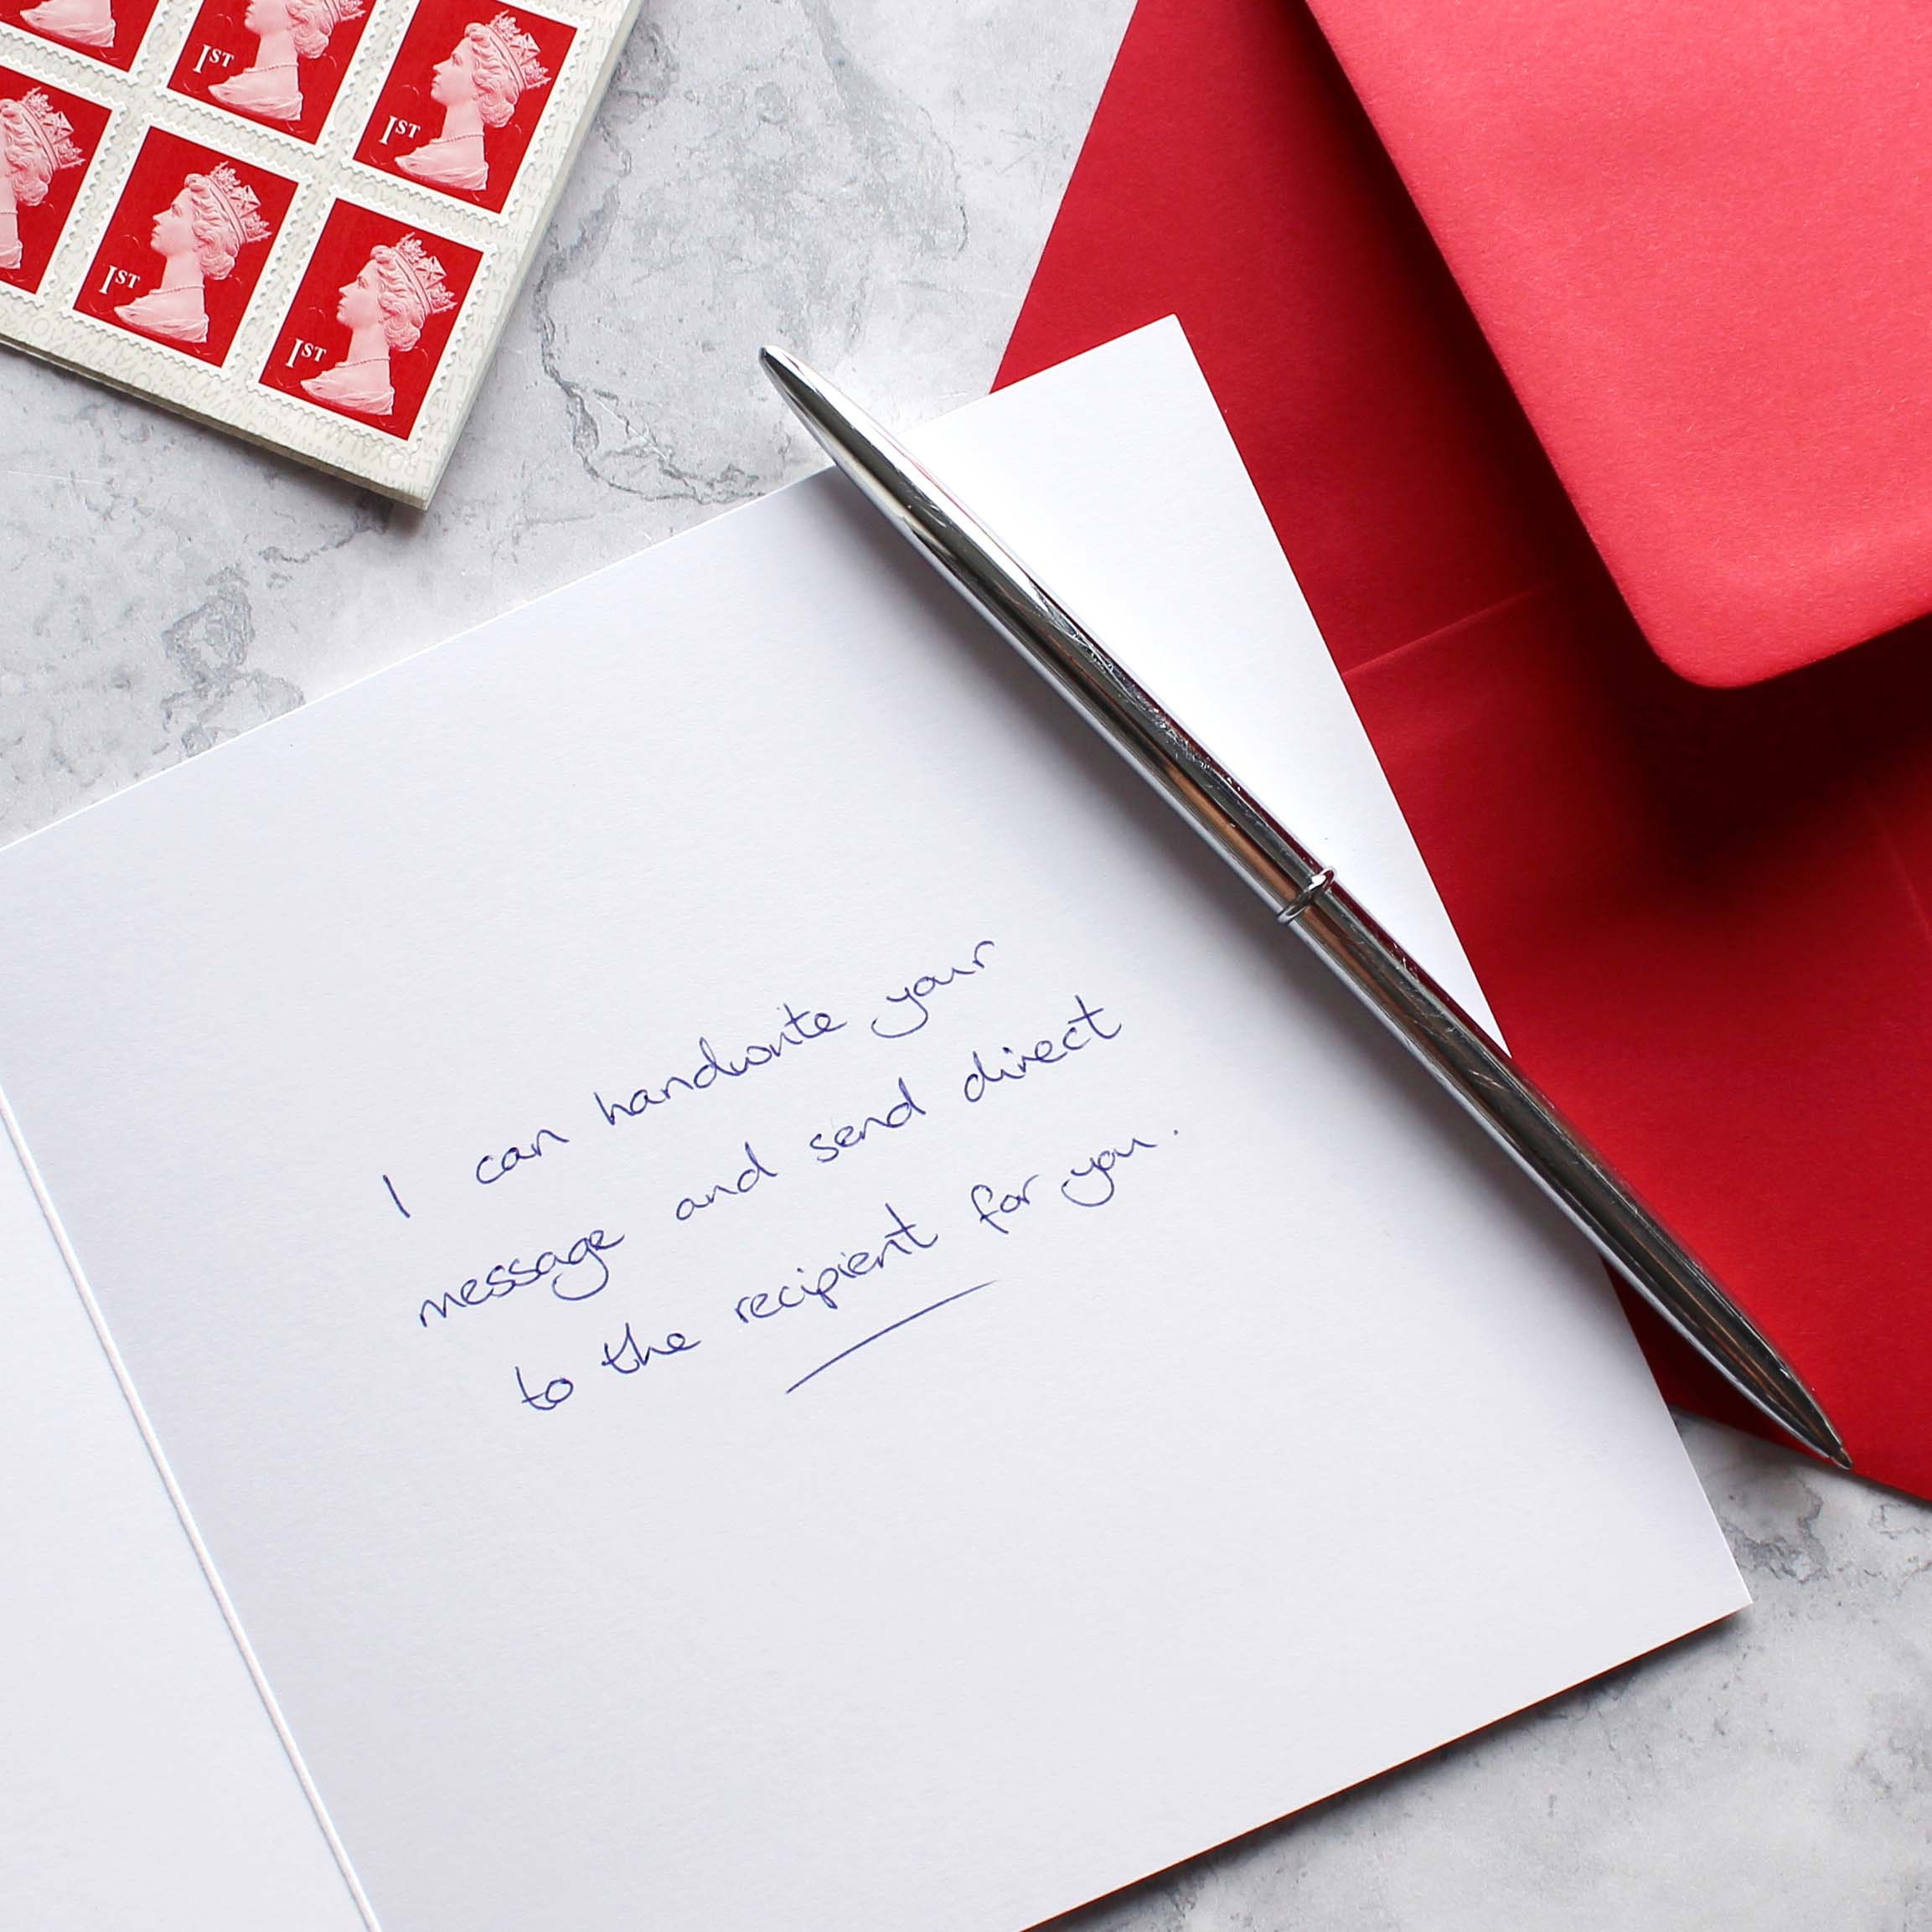 1ST
1ST
1ST
1ST
I can handwrite your
message and send direct
to the recipient for you.